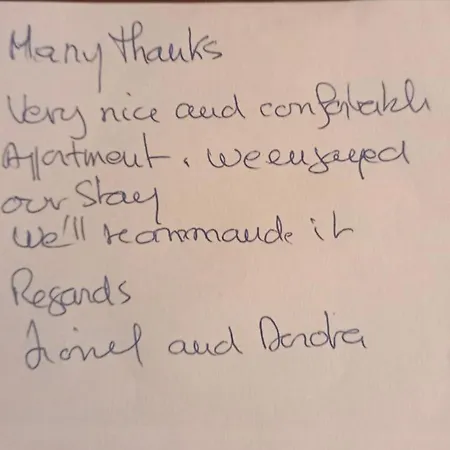 Many thanks
Very nice and comfortable
Appartment. We enjoyed
our Stay
We'll recommande it
Regards
Lionel and